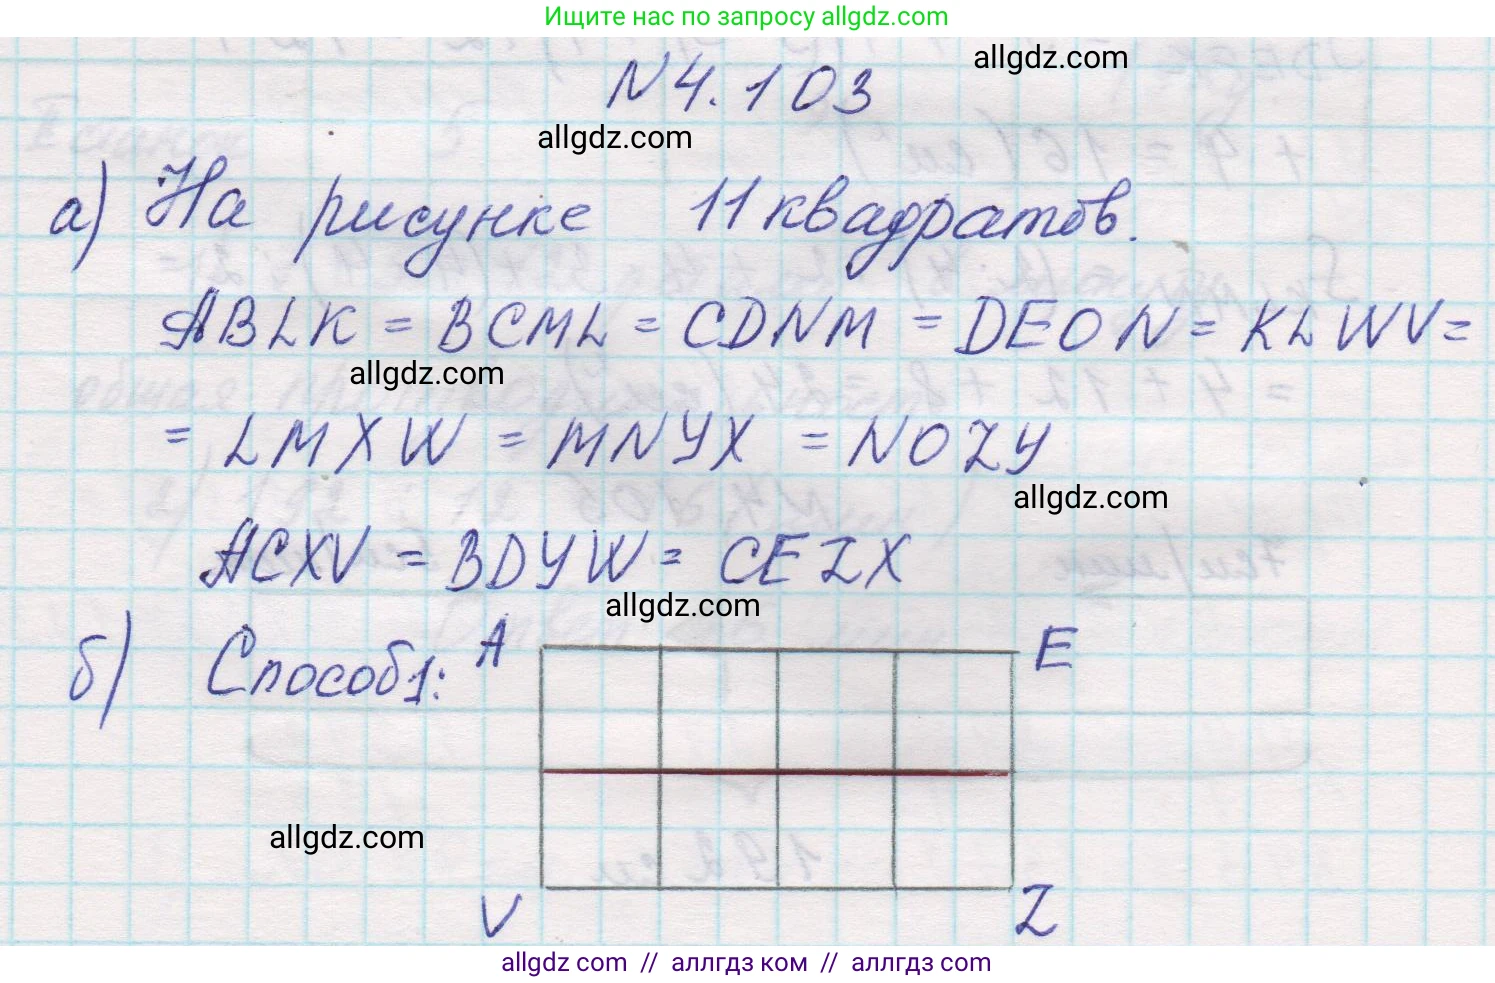 Ищите нас по запросу allgdz.com
N4.103
allgdz.com
allgdz.com
а) На рисунке 11 квадратов.
ABLK = BCML = CDNM = DEON = KLWV =
allgdz.com
= LMXW = MNYX = NOZY
allgdz.com
ACXV = BDYW = CEZX
allgdz.com
б) Способ1: A E
allgdz.com
V Z
allgdz com // аллгдз ком // аллгдз com